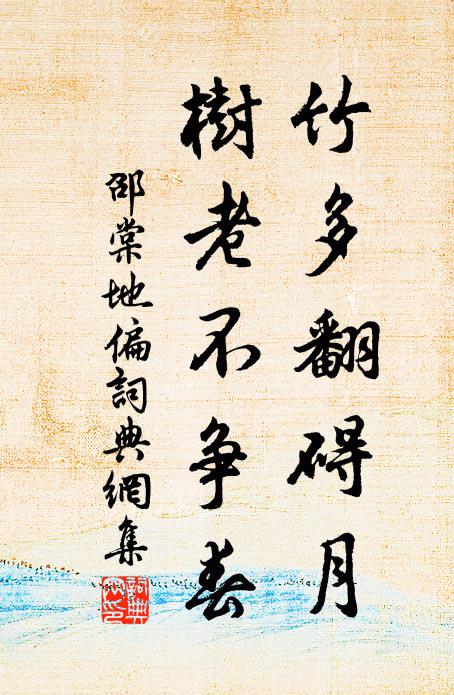 竹多翻碍月
樹老不争春
邵棠地偏詞典網集